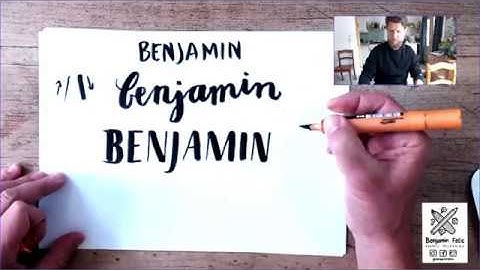 BENJAMIN
benjamin
BENJAMIN
Benjamin Felis